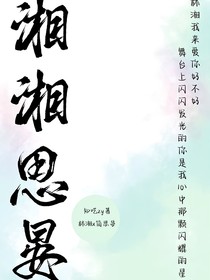 韩湘我来爱你好不好
舞台上闪闪发光的你是我心中那颗闪耀的星
湘湘思晏
zy著
韩湘x简思晏